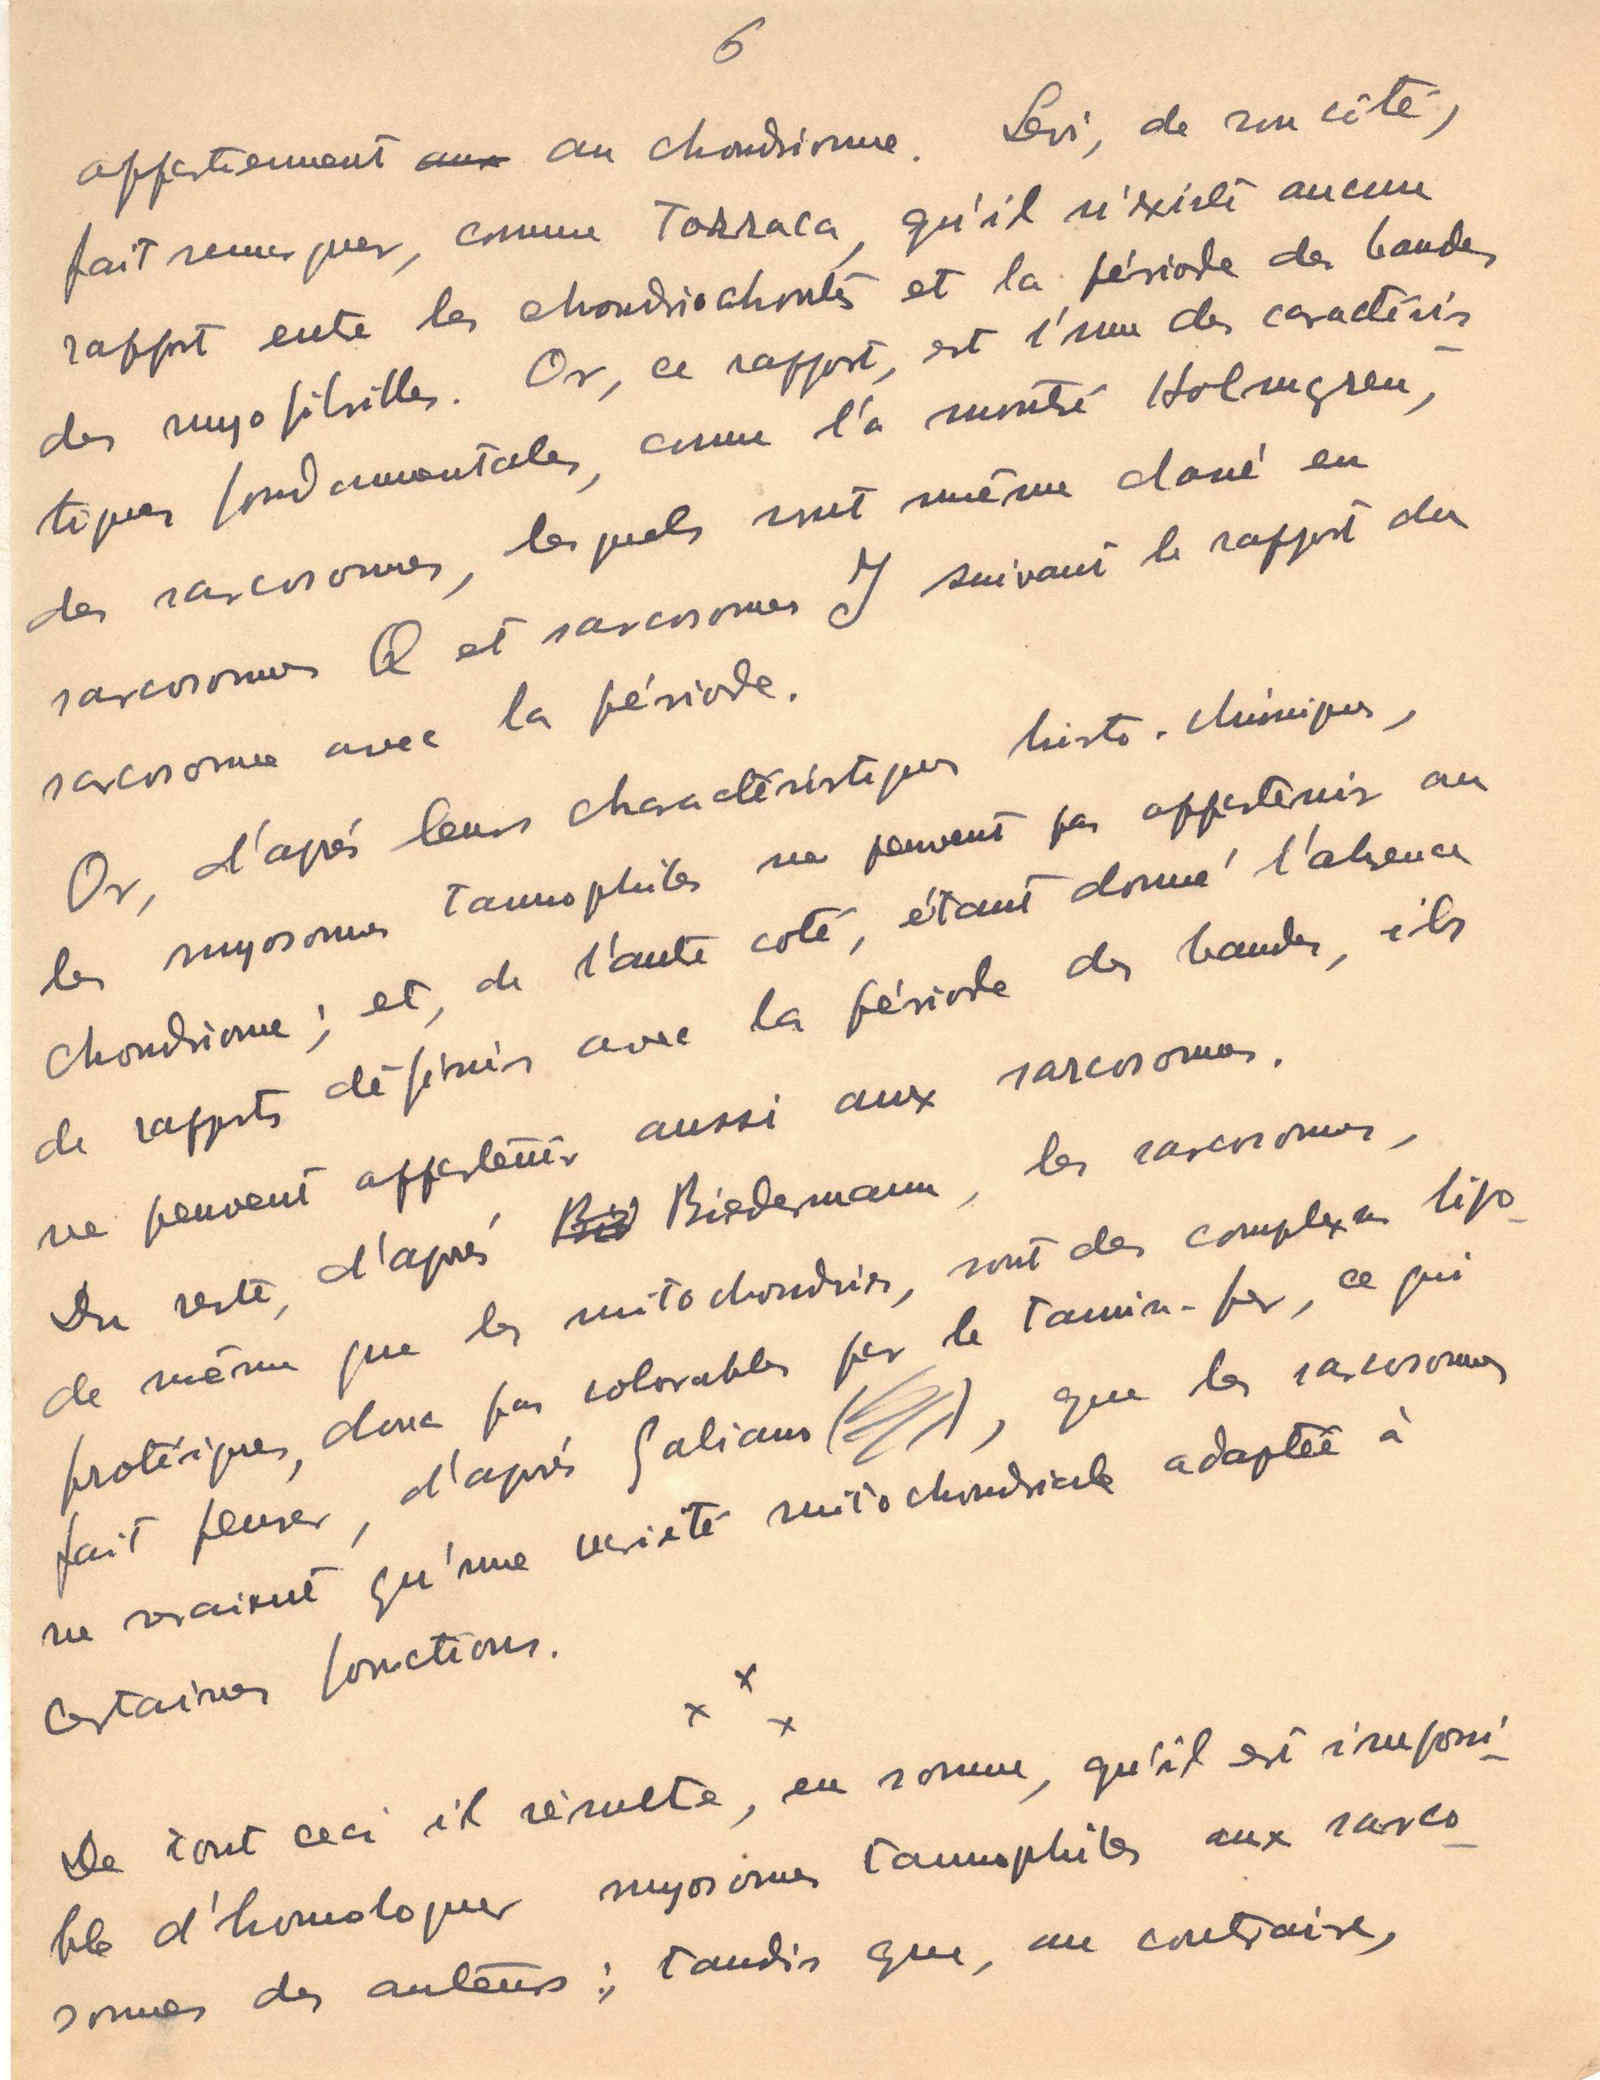 6
appartiennent aux au chondriome. Levi, de son côté,
fait remarquer, comme Torraca, qu'il n'existe aucun
rapport entre les chondriochontes et la période des bandes
des myofibrilles. Or, ce rapport, est l'une des caractéris-
tiques fondamentales, comme l'a montré Holmgren,
des sarcosomes, lesquels sont même classé en
sarcosomes Q et sarcosomes J suivant le rapport du
sarcosome avec la période.
Or, d'après leurs charactéristiques histo-chimiques,
les myosomes tannophiles ne peuvent pas appartenir au
chondriome; et, de l'autre coté, étant donné l'absence
de rapports définis avec la période des bandes, ils
ne peuvent appartenir aussi aux sarcosomes.
Du reste, d'après Bid Biedermann, les sarcosomes,
de même que les mitochondries, sont des complexes lipo-
protéiques, donc pas colorables par le tannin-fer, ce qui
fait penser, d'après Galiano ( ), que les sarcosomes
ne seraient qu'une varieté mitochondriale adaptée à
certaines fonctions.
x x x
De tout ceci il résulte, en somme, qu'il est impossi-
ble d'homologuer myosomes tannophiles aux sarco-
somes des auteurs; tandis que, au contraire,